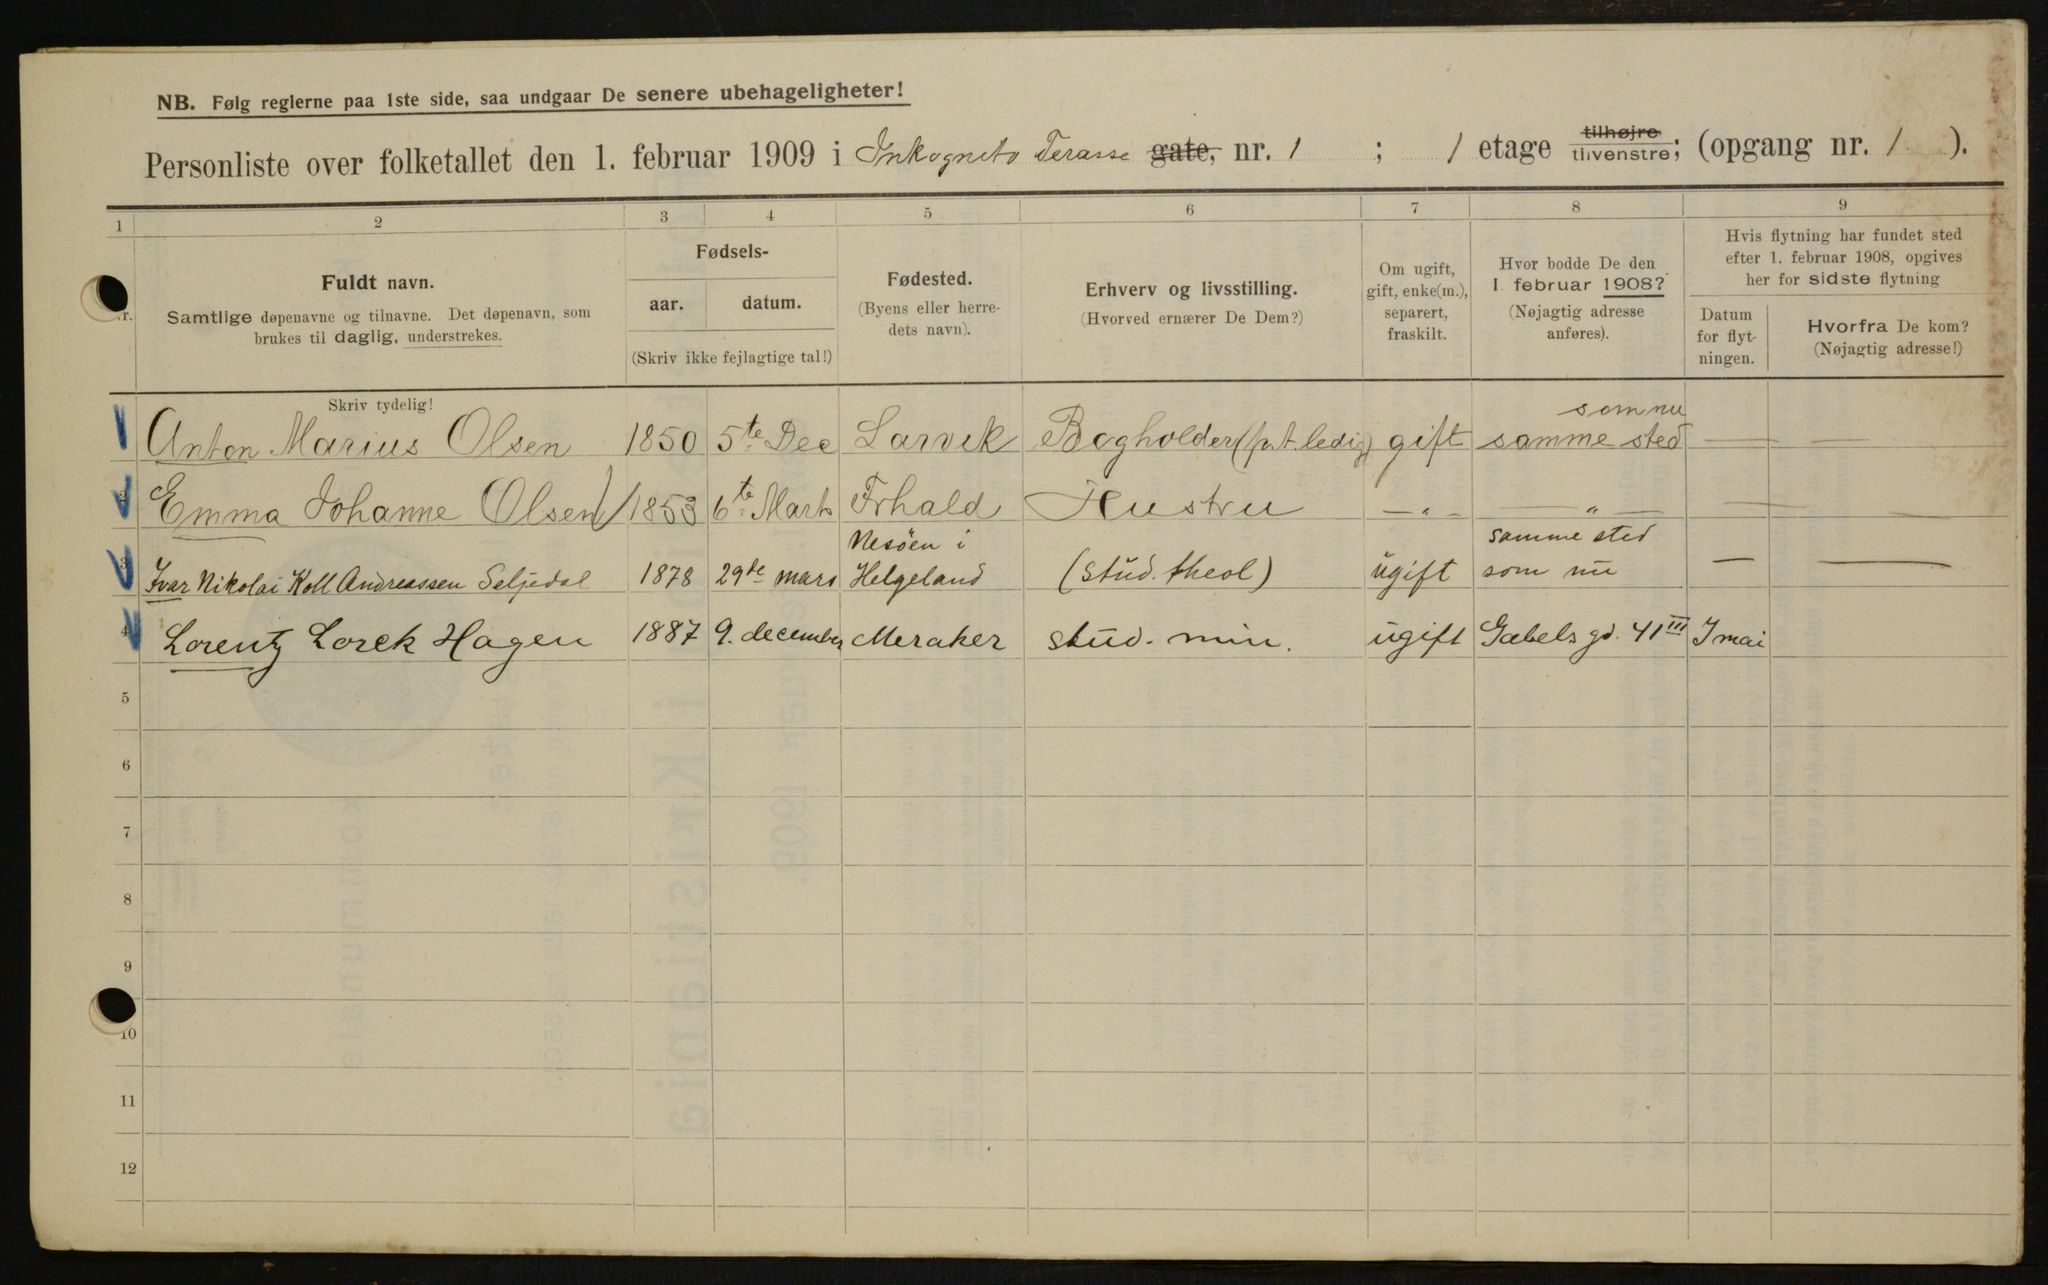 NB. Følg reglerne paa 1ste side, saa undgaar De senere ubehageligheter!
Personliste over folketallet den 1. februar 1909 i Inkognito Terasse gate, nr. 1 ; 1 etage tilhøjre tilvenstre; (opgang nr. 1 ).
1 2 3 4 5 6 7 8 9
Nr.
Fuldt navn.
Samtlige døpenavne og tilnavne. Det døpenavn, som
brukes til daglig, understrekes.
Skriv tydelig!
Fødsels-
aar. datum.
(Skriv ikke fejlagtige tal!)
Fødested.
(Byens eller herre-
dets navn).
Erhverv og livsstilling.
(Hvorved ernærer De Dem?)
Om ugift,
gift, enke(m.),
separert,
fraskilt.
Hvor bodde De den
1. februar 1908?
(Nøjagtig adresse
anføres).
Hvis flytning har fundet sted
efter 1. februar 1908, opgives
her for sidste flytning
Datum
for flyt-
ningen.
Hvorfra De kom?
(Nøjagtig adresse!)
som nu
Anton Marius Olsen 1850 5te Dec Larvik Bogholder (p.t. ledig) gift samme sted — —
2 Emma Johanne Olsen 1853 6te Marts Frhald Hustru —„— —„— — —
Nesöen i samme sted
3 Ivar Nikolai Koll Andreassen Seljedal 1878 29de mars Helgeland (stud. theol) ugift som nu — —
4 Lorentz Lorck Hagen 1887 9. december Meraker stud. min. ugift Gabels gd. 41 III I mai
5
6
7
8
9
10
11
12